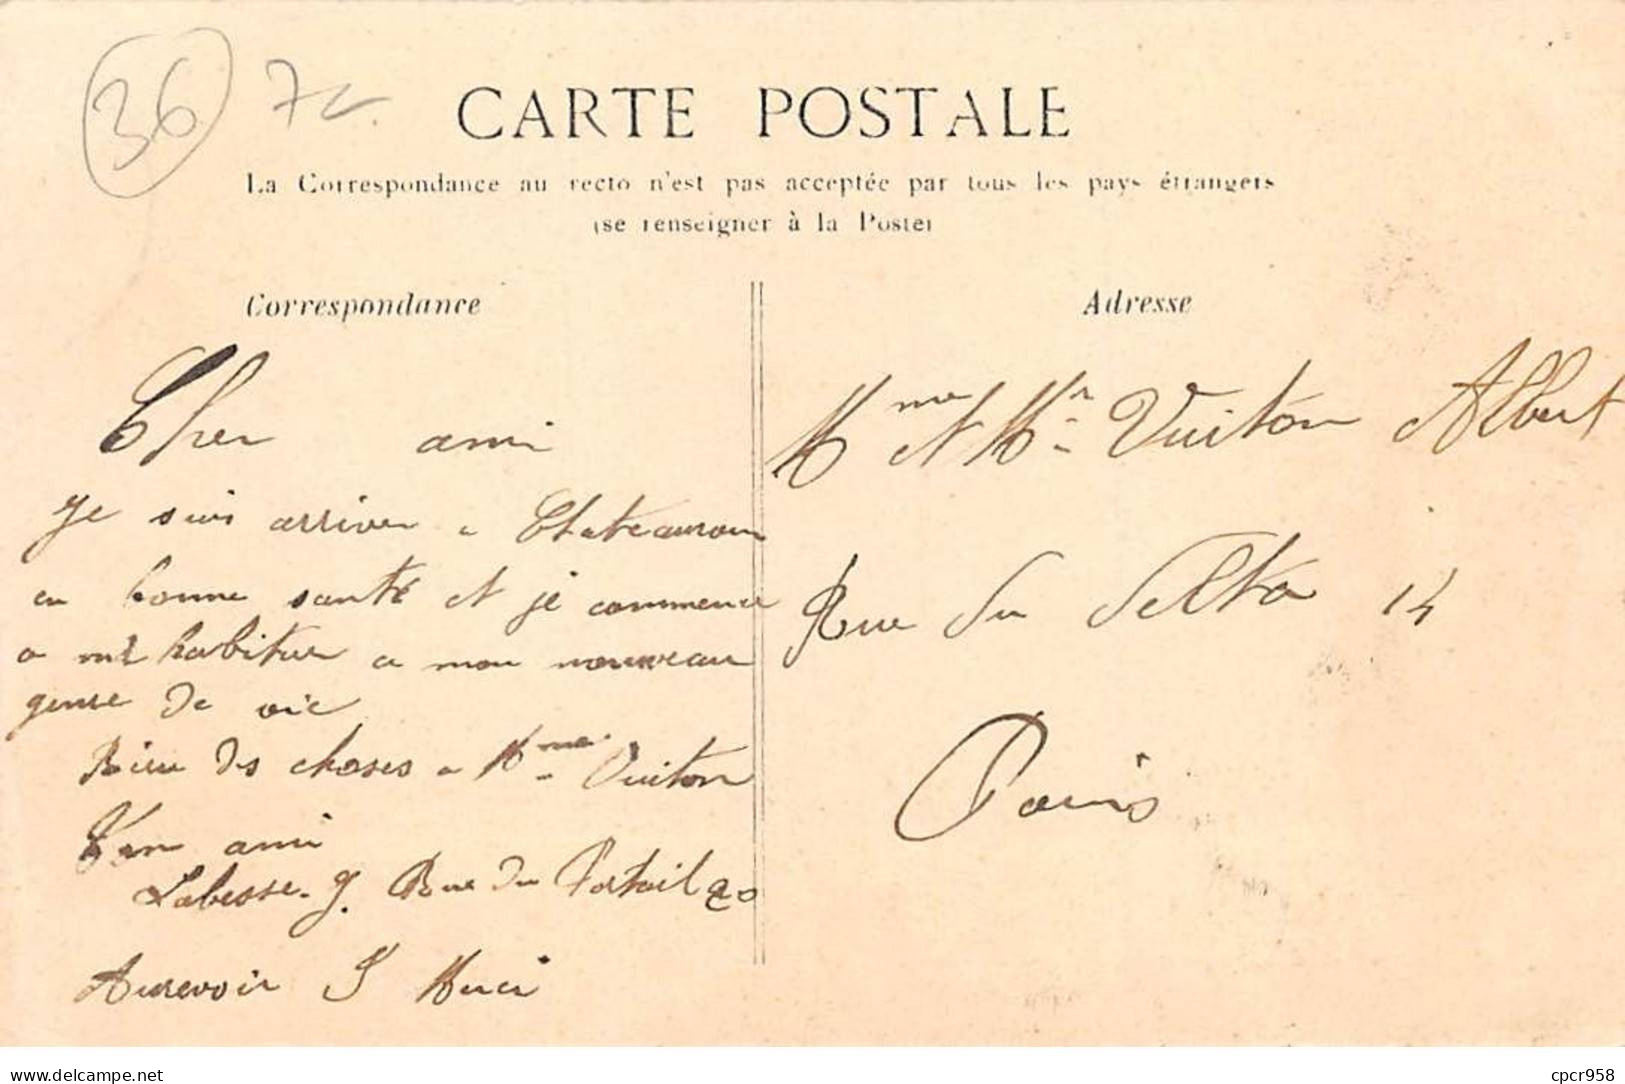 36 7
CARTE POSTALE
La Correspondance au recto n'est pas acceptée par tous les pays étrangers
(se renseigner à la Poste)
Correspondance
Cher ami
Je suis arriver a Chateauroux
en bonne santé et je commence
a mt habituer a mon nouveau
genre de vie
Bien des choses a Mme Vuiton
Ton ami
Labesse. J. Rue du Portail 20
Aurevoir Merci
Adresse
Mme et Mr Vuiton Albert
Rue du Delta 14
Paris
delcampe.net
cpcr958